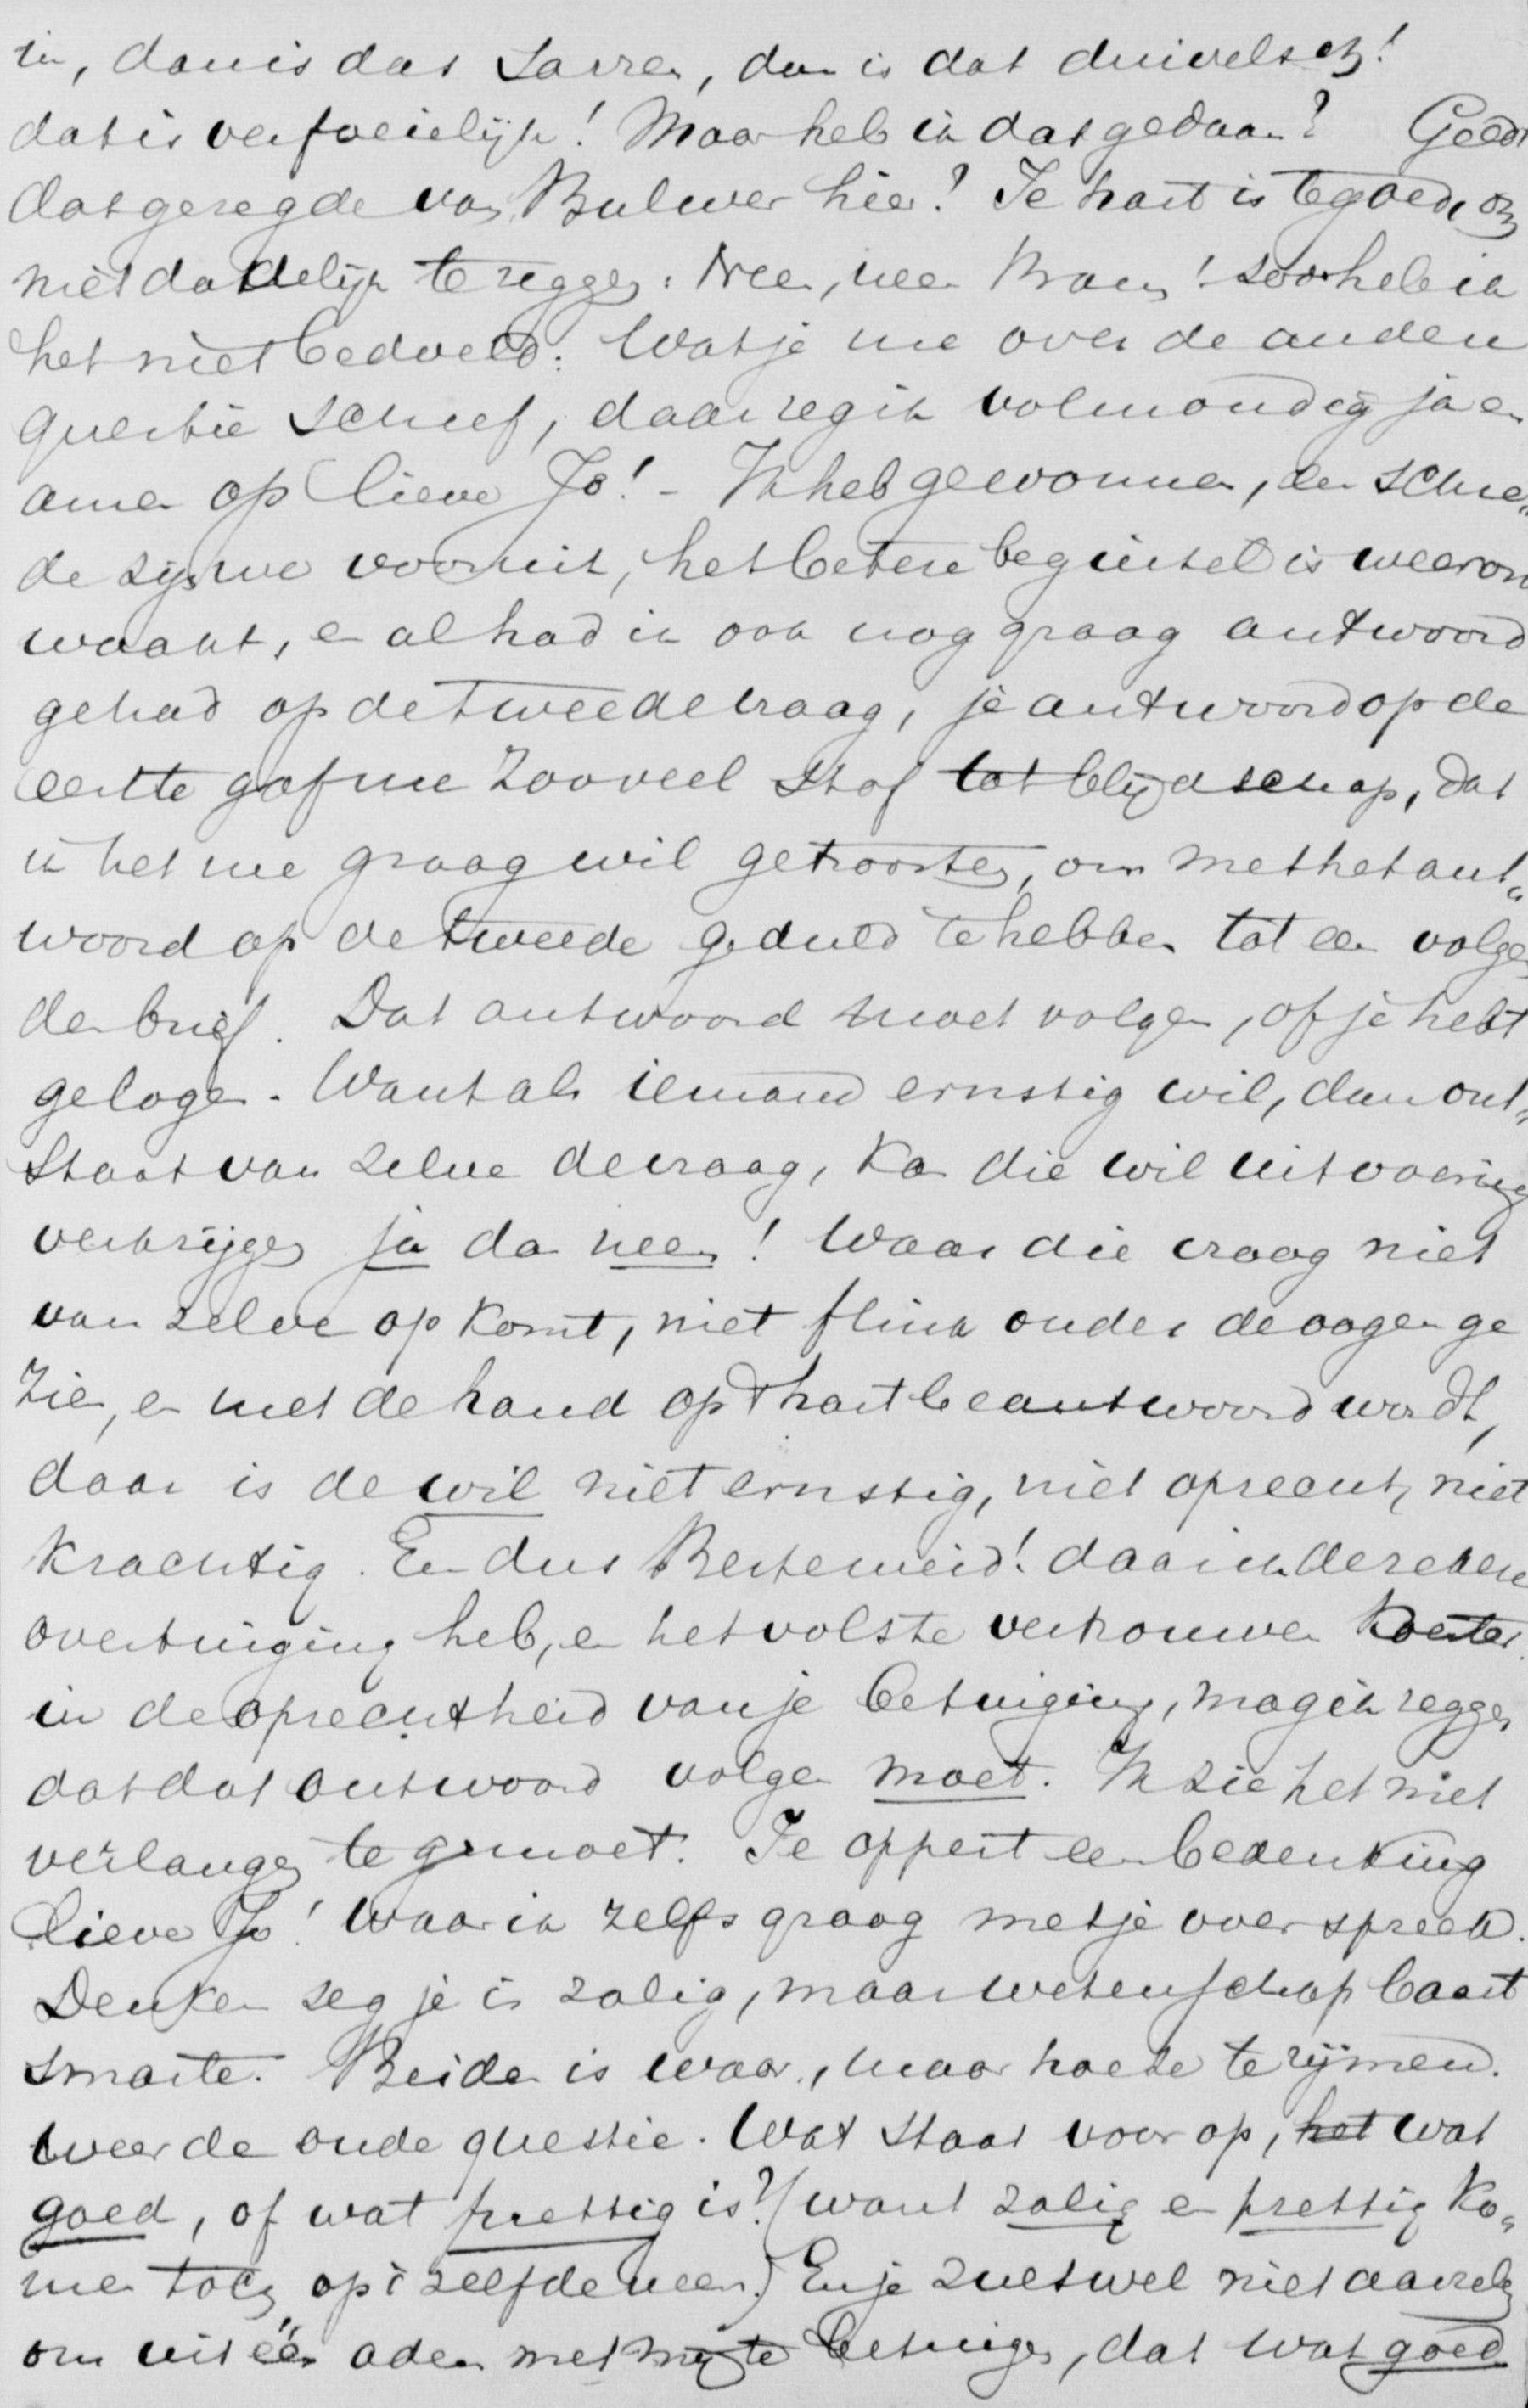 in, dan is dat Sarren, dan is dat duivelsch!
dat is verfoeielijk! Maar heb ik dat gedaan? Geldt
dat gezegde van Bulwer hier? Je hart is te goed, om
niet dadelijk te zeggen: Nee, nee Bram! zoo heb ik
het niet bedoeld. Wat je me over de andere
questie schreef, daar zeg ik volmondig ja en
amen op lieve Jo! – Ik heb gewonnen, een schre„
de zijn we vooruit, het betere beginsel is weer ont
waakt, en al had ik ook nog graag antwoord
gehad op de tweede vraag, je antwoord op de
eerste gaf me zooveel stof tot blijdschap, dat
ik het me graag wil getroosten, om met het ant„
woord op de tweede geduld te hebben tot een volgen
den brief. Dat antwoord moet volgen, of je hebt
gelogen. Want als iemand ernstig wil, dan ont„
staat van zelve de vraag, kan die wil uitvoering
verkrijgen ja dan neen! Waar die vraag niet
van zelve op komt, niet flink onder de oogen ge
zien, en met de hand op 't hart beantwoord wordt,
daar is de wil niet ernstig, niet oprecht, niet
krachtig. En dus Beste meid! daar ik de zekere
overtuiging heb, en het volste vertrouwen koester
in de oprechtheid van je betuiging, mag ik zeggen
dat dat antwoord volgen moet. Ik zie het met
verlangen te gemoet. Je oppert een bedenking
lieve Jo! waar ik zelfs graag met je over spreek.
Denken zeg je is zalig, maar wetenschap baart
smarte. Beiden is waar, maar hoe te rijmen.
Weer de oude questie. Wat staat voor op, het wat
goed, of wat prettig is? (want zalig en prettig ko„
men toch op 't zelfde neer.) En je zult wel niet aarzelen
om uit één adem met mij te betuigen, dat wat goed